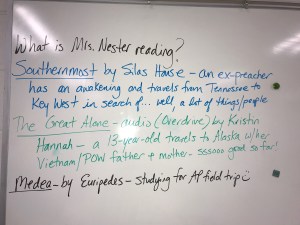 What is Mrs. Nester reading?
Southernmost by Silas House - an ex-preacher
has an awakening and travels from Tennessee to
Key West in search of... well, a lot of things/people
The Great Alone - audio (Overdrive) by Kristin
Hannah - a 13-year-old travels to Alaska w/her
Vietnam/POW father + mother - sssooo good so far!
Medea - by Euripedes - studying for AP field trip